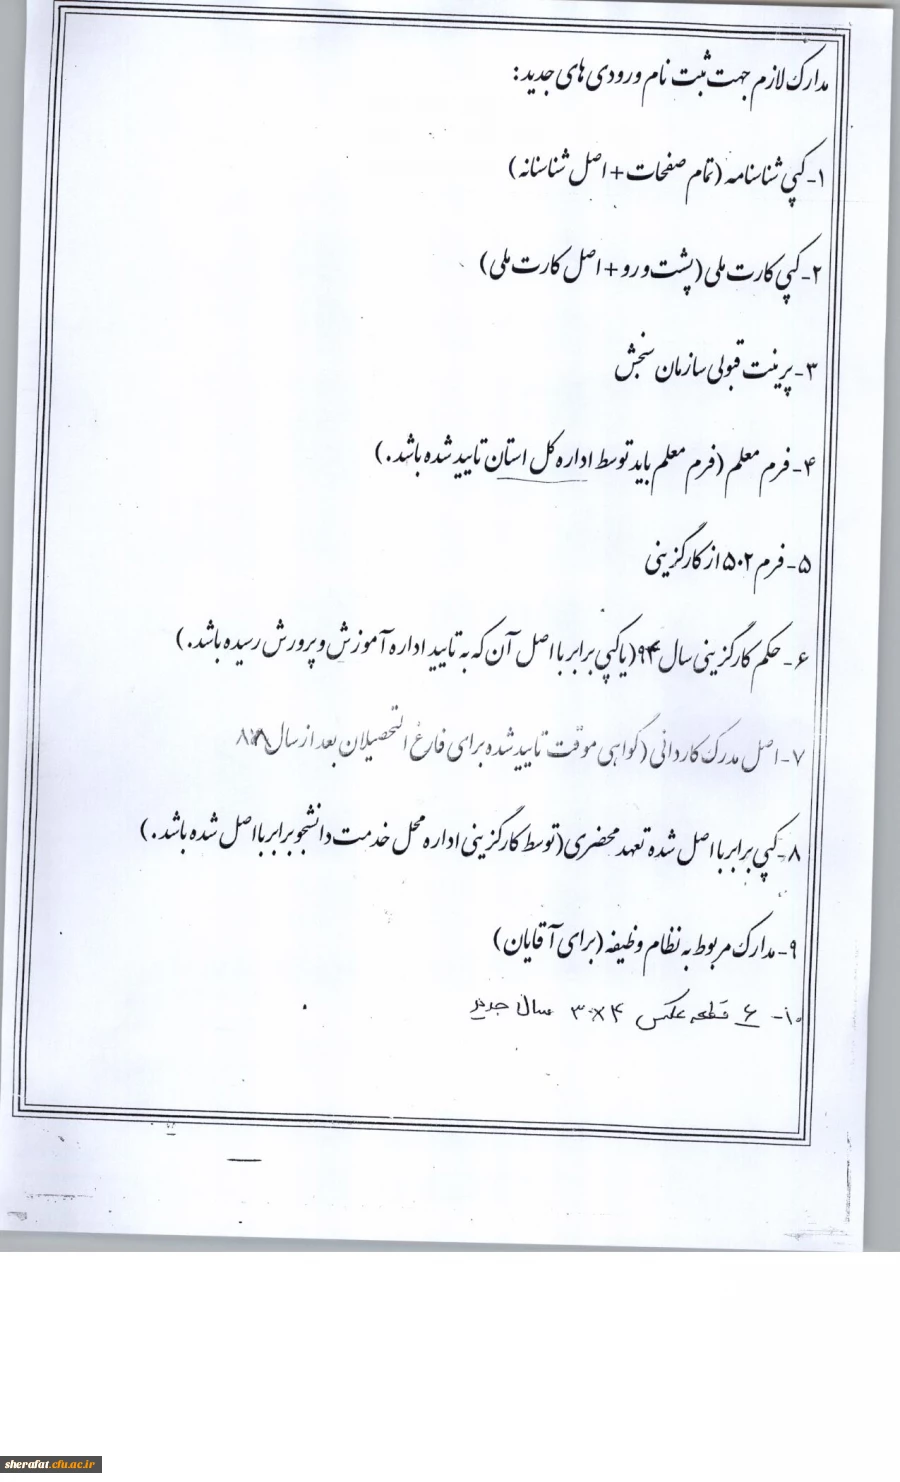 مدارک لازم جهت ثبت نام ورودی های جدید:
۱- کپی شناسنامه (تمام صفحات + اصل شناسنانه)
۲- کپی کارت ملی (پشت و رو + اصل کارت ملی)
۳- پرینت قبولی سازمان سنجش
۴- فرم معلم (فرم معلم باید توسط اداره کل استان تایید شده باشد.)
۵- فرم ۵۰۲ از کارگزینی
۶- حکم کارگزینی سال ۹۴(یا کپی برابر با اصل آن که به تایید اداره آموزش و پرورش رسیده باشد.)
۷- اصل مدرک کاردانی (گواهی موقت تایید شده برای فارغ التحصیلان بعد از سال
۸- کپی برابر با اصل شده تعهد محضری(توسط کارگزینی اداره محل خدمت دانشجو برابر با اصل شده باشد.)
۹- مدارک مربوط به نظام وظیفه (برای آقایان)
۱۰- ۶ قطعه عکس ۳×۴ سال جدید
sherafat.cfu.ac.ir